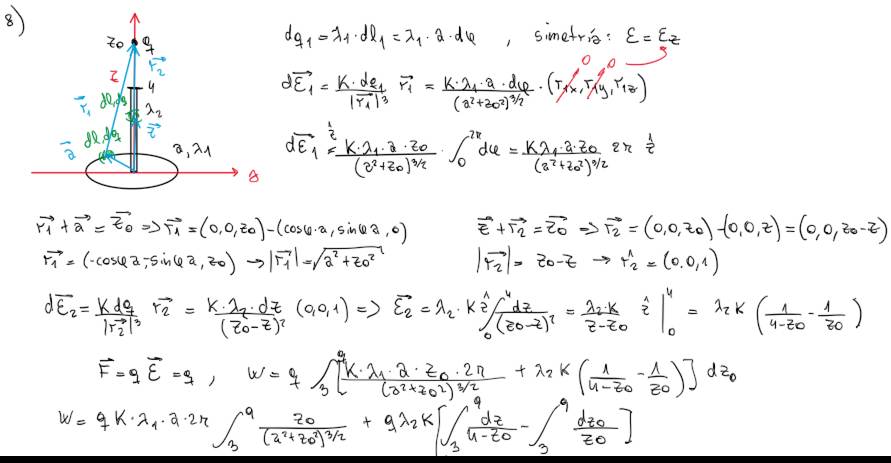 8)
z₀ q
r₂
z
4
r₁ dl,dq λ₂
z
a dl,dq
a, λ₁
dq₁ = λ₁·dl₁ = λ₁·a·dφ , simetría: E = Ez
dE₁ = K·dq₁/|r₁|³ r₁ = K·λ₁·a·dφ/(a²+z₀²)^3/2 · (r₁x, r₁y, r₁z) 0 0
dE₁ = ẑ K·λ₁·a·z₀/(a²+z₀)^3/2 · ∫₀^2π dφ = Kλ₁·a·z₀/(a²+z₀²)^3/2 2π ẑ
r₁ + a = z₀ => r₁ = (0,0,z₀) - (cosφ·a, sinφ a, 0)
z + r₂ = z₀ => r₂ = (0,0,z₀) - (0,0,z) = (0,0,z₀-z)
r₁ = (-cosφ a, -sinφ a, z₀) → |r₁| = √(a²+z₀²)
|r₂| = z₀-z → r̂₂ = (0,0,1)
dE₂ = K dq/|r₂|³ r₂ = K·λ₂·dz/(z₀-z)² (0,0,1) => E₂ = λ₂·K ẑ ∫₀^4 dz/(z₀-z)² = λ₂·K/z-z₀ ẑ |₀^4 = λ₂K (1/4-z₀ - 1/z₀)
F = qE = q , W = q ∫₃^9 [K·λ₁·a·z₀·2π/(a²+z₀²)^3/2 + λ₂K (1/4-z₀ - 1/z₀)] dz₀
W = qK·λ₁·a·2π ∫₃^9 z₀/(a²+z₀²)^3/2 + qλ₂K [∫₃^9 dz/4-z₀ - ∫₃^9 dz₀/z₀]